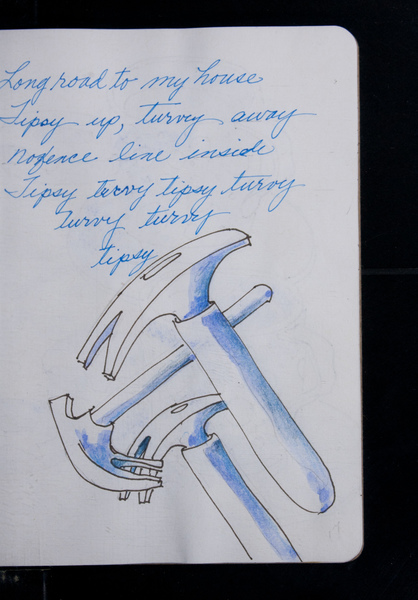 Long road to my house
Tipsy up, turvy away
No fence line inside
Tipsy turvy tipsy turvy
turvy turvy
tipsy